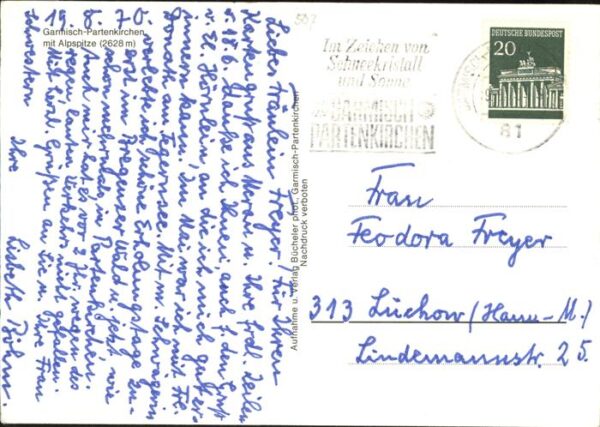 Garmisch-Partenkirchen
mit Alpspitze (2628 m)
19. 8. 70.
Liebes Fräulein Freyer! Für Ihren
Kartengruß aus Meran u. Ihre frdl. Zeilen
v. 17.6. danke ich Ihnen, auch f. den Gruß
v. El. Hörnlein, an die ich mich gut er-
innern kann. Im Mai war ich mit Frl.
am Tegernsee. Mit m. Schwägerin
verlebte ich schöne Erholungstage zu-
erst im Bregenzer Wald u. jetzt, wie
schon mehrmals in Partenkirchen.
Auch mir hat es vor 2 Jhr. wegen des
lauten Verkehrs nicht gefallen.
Mit herzl. Grüßen an Sie u. Ihre Frau
Schwester
Ihre
Lisbeth Böhm.
Aufnahme u. Verlag Bücheler phot., Garmisch-Partenkirchen
Nachdruck verboten
Im Zeichen von
Schneekristall
und Sonne
GARMISCH
PARTENKIRCHEN
81
DEUTSCHE BUNDESPOST
20
Frau
Feodora Freyer
313 Lüchow (Hann-M.)
Lindemannstr. 25.